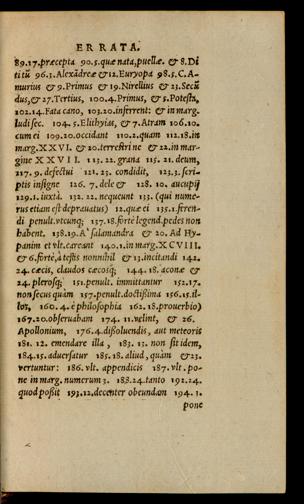 ERRATA.
89.17. præcepta 90.5. quæ nata, puellæ. & 8. Di
ti tū 96.3. Alexādreæ & 12. Euryopa 98.5. C. A-
murius & 9. Primus & 19. Nirellius & 23. Secū
dus, & 27. Tertius, 100.4. Primus, & 5. Potestà,
102.14. Fata cano, 103.20. inferrent: & in marg.
ludi sec. 104.5. Elithyias, & 7. Atram 106.10.
cum ei 109.20. occidant 110.2. quam 112.18. in
marg. XXVI. & 20. terrestri ne & 22. in mar-
gine XXVII. 113.22. grana 115.21. deum,
217.9. defectui 121.23. condidit, 123.3. scri-
ptis insigne 126.7. dele & 128.10. aucupij
129.1. iuxtà. 132.22. nequeunt 133. (qui nume-
rus etiam est deprauatus) 12. quæ ei 135.1. feren-
di penult. vtcunq; 137.18. fortè legend. pedes non
habent. 138.19. A' salamandra & 20. Ad Hy-
panim et vlt. careant 140.1. in marg. XCVIII.
& 6. fortè, à testis nonnihil & 13. incitandi 142.
24. cæcis, claudos cæcosq; 144.18. aconæ &
24. plerosq; 151. penult. immittantur 152.17.
non secus quàm 157. penult. doctißima 156.15. il-
lor, 160.4. è philosophia 162.18. prouerbio)
167.20. obseruabam 174.11. velint, & 26.
Apollonium, 176.4. dißoluendis, aut meteoris
181.12. emendare illa, 183.13. non sit idem,
184.15. aduersatur 185.18. aliud, quàm & 23.
vertuntur: 186. vlt. appendicis 187. vlt. po-
ne in marg. numerum 3. 188.24. tanto 192.24.
quod poßit 193.12. decenter obeundam 194.1.
pone